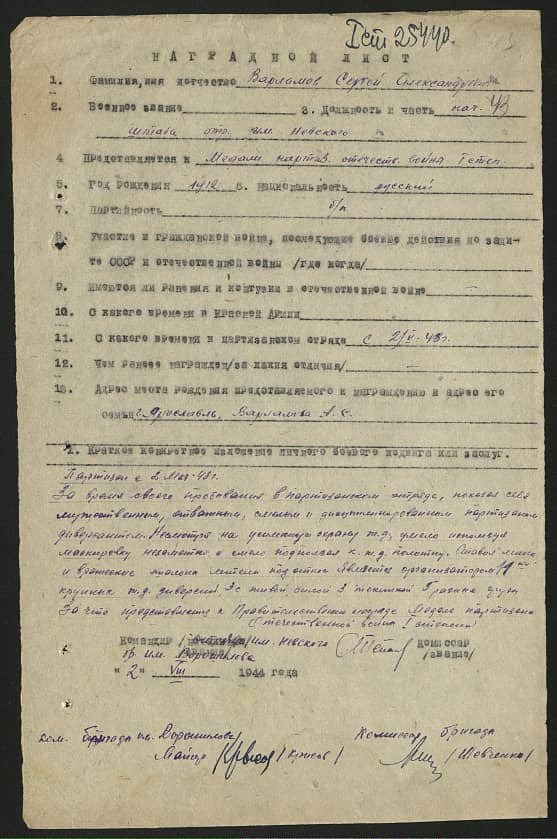 Iст 25440.
НАГРАДНОЙ ЛИСТ
1. Фамилия, имя отчество Варламов Сергей Александрович
2. Военное звание 3. Должность и часть нач.
штаба отр. им. Невского
4 Представляется к Медали партиз. отечеств. война I степ.
5. Год рождения 1912 6. Национальность русский
7. Партийность б/п
8. Участие в гражданской войне, последующие боевые действия по защи-
те СССР и отечественной войны /где когда/
9. Имеются ли ранения и контузии в отечественной войне —
10. С какого времени в Красной Армии
11. С какого времени в партизанском отряде с 2/V-43г.
12. Чем ранее награжден/за какия отличия/ —
13. Адрес места рождения представляемого к награждению и адрес его
семьи г. Ярославль, Варламова А. С.
1. Краткое конкретное изложение личного боевого подвига или заслуг.
Партизан с 2 мая 43 г.
За время своего пребывания в партизанском отряде, показал себя
мужественным, отважным, смелым и дисциплинированным партизаном
диверсантом. Несмотря на усиленную охрану ж.д. умело используя
маскировку незаметно и смело подползая к ж.д. полотну. Ставил мины
и вражеские эшелоны летели под откос. Является организатором 11
крупных ж.д. диверсий 3 с живой силой 3 техникой
За что представляется к Правительственной награде Медаль партизана
Отечественной войны I степени
Командир им. Невского Комиссар
/звание/ /звание/
им. Ворошилова
"2" VIII 1944 года
ком. бригады им. Ворошилова Комиссар бригады
Майор /Шевченко/